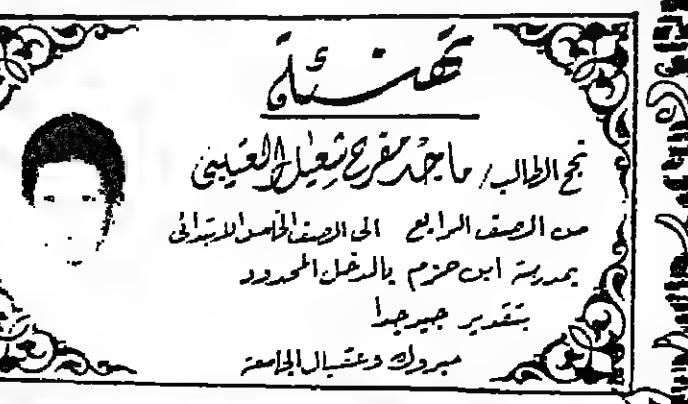 تهنئة
نجح الطالب / ماجد مفرح شعيل العتيبي
من الصف الرابع الى الصف الخامس الابتدائى
بمدرسة ابن حزم بالدخل المحدود
بتقدير جيد جدا
مبروك وعقبال الجامعة